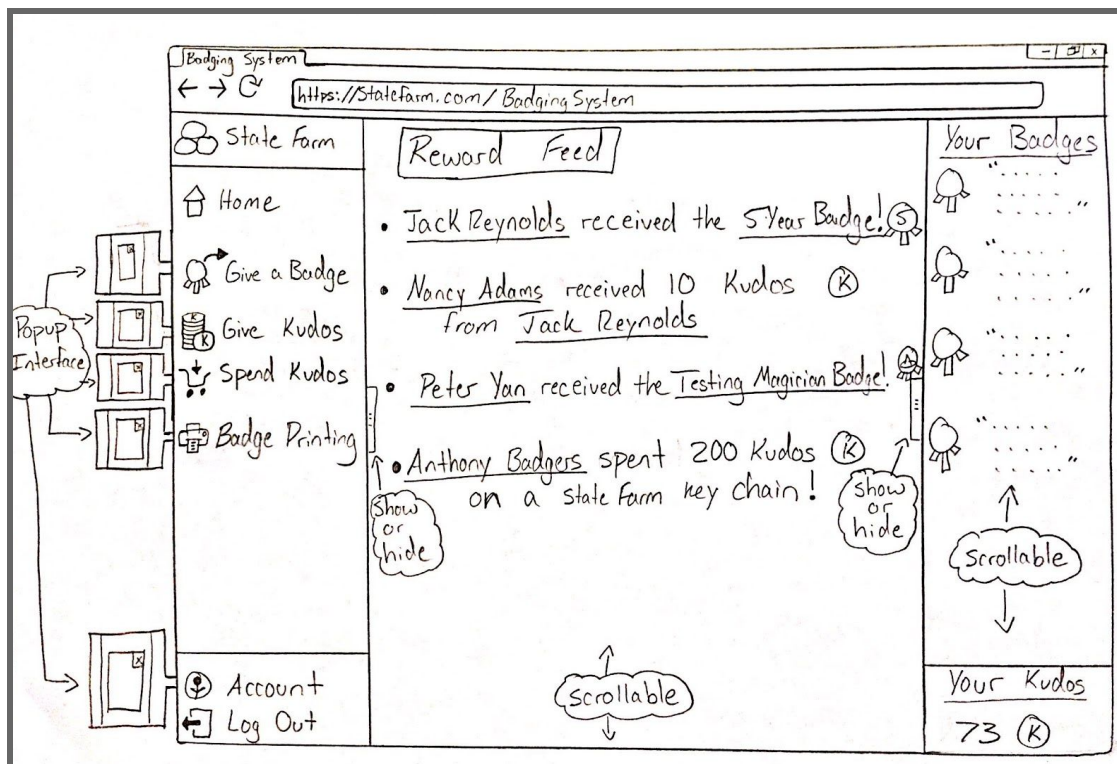 Badging System
https://Statefarm.com/BadgingSystem
State Farm
Home
Give a Badge
Give Kudos
Spend Kudos
Badge Printing
Account
Log Out
Popup
Interface
Reward Feed
• Jack Reynolds received the 5 Year Badge! 5
• Nancy Adams received 10 Kudos K
from Jack Reynolds
• Peter Yan received the Testing Magician Badge!
• Anthony Badgers spent 200 Kudos K
on a State Farm key chain!
Show
or
hide
Show
or
hide
Scrollable
Your Badges
Scrollable
Your Kudos
73 K